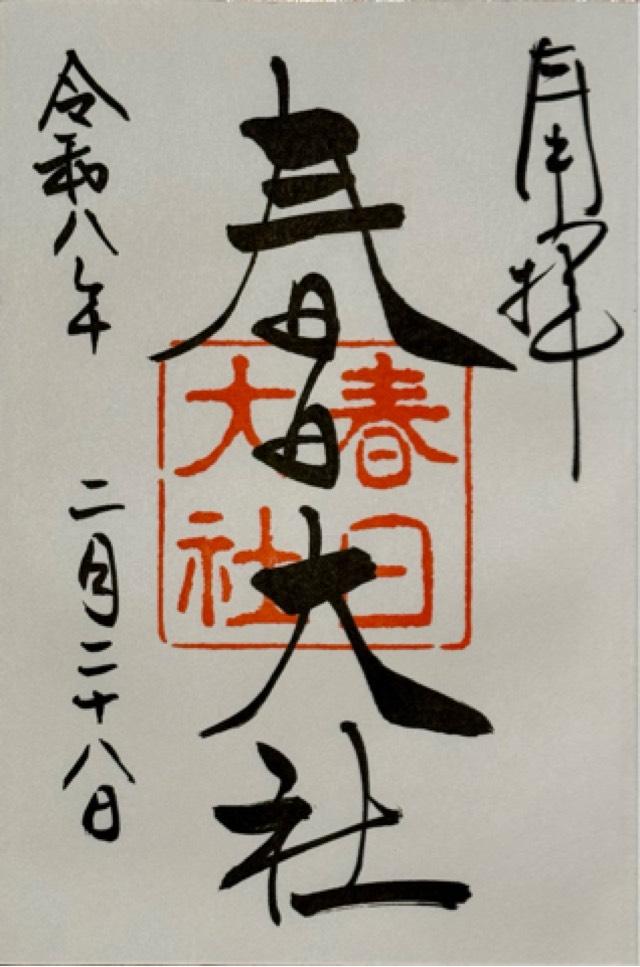 奉拝
春日大社
春日
大社
令和八年
二月二十八日